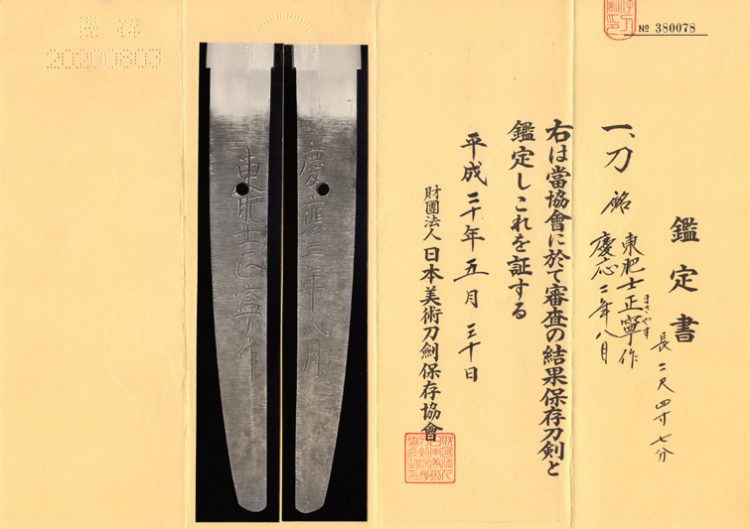 № 380078
鑑定書
一、刀 銘 東肥士正寧作
まさやす
慶応二年八月
長 二尺四寸七分
右は當協會に於て審査の結果保存刀剣と
鑑定しこれを証する
平成二十年五月三十日
財團法人日本美術刀劍保存協會
慶應二年八月
東肥士正寧作